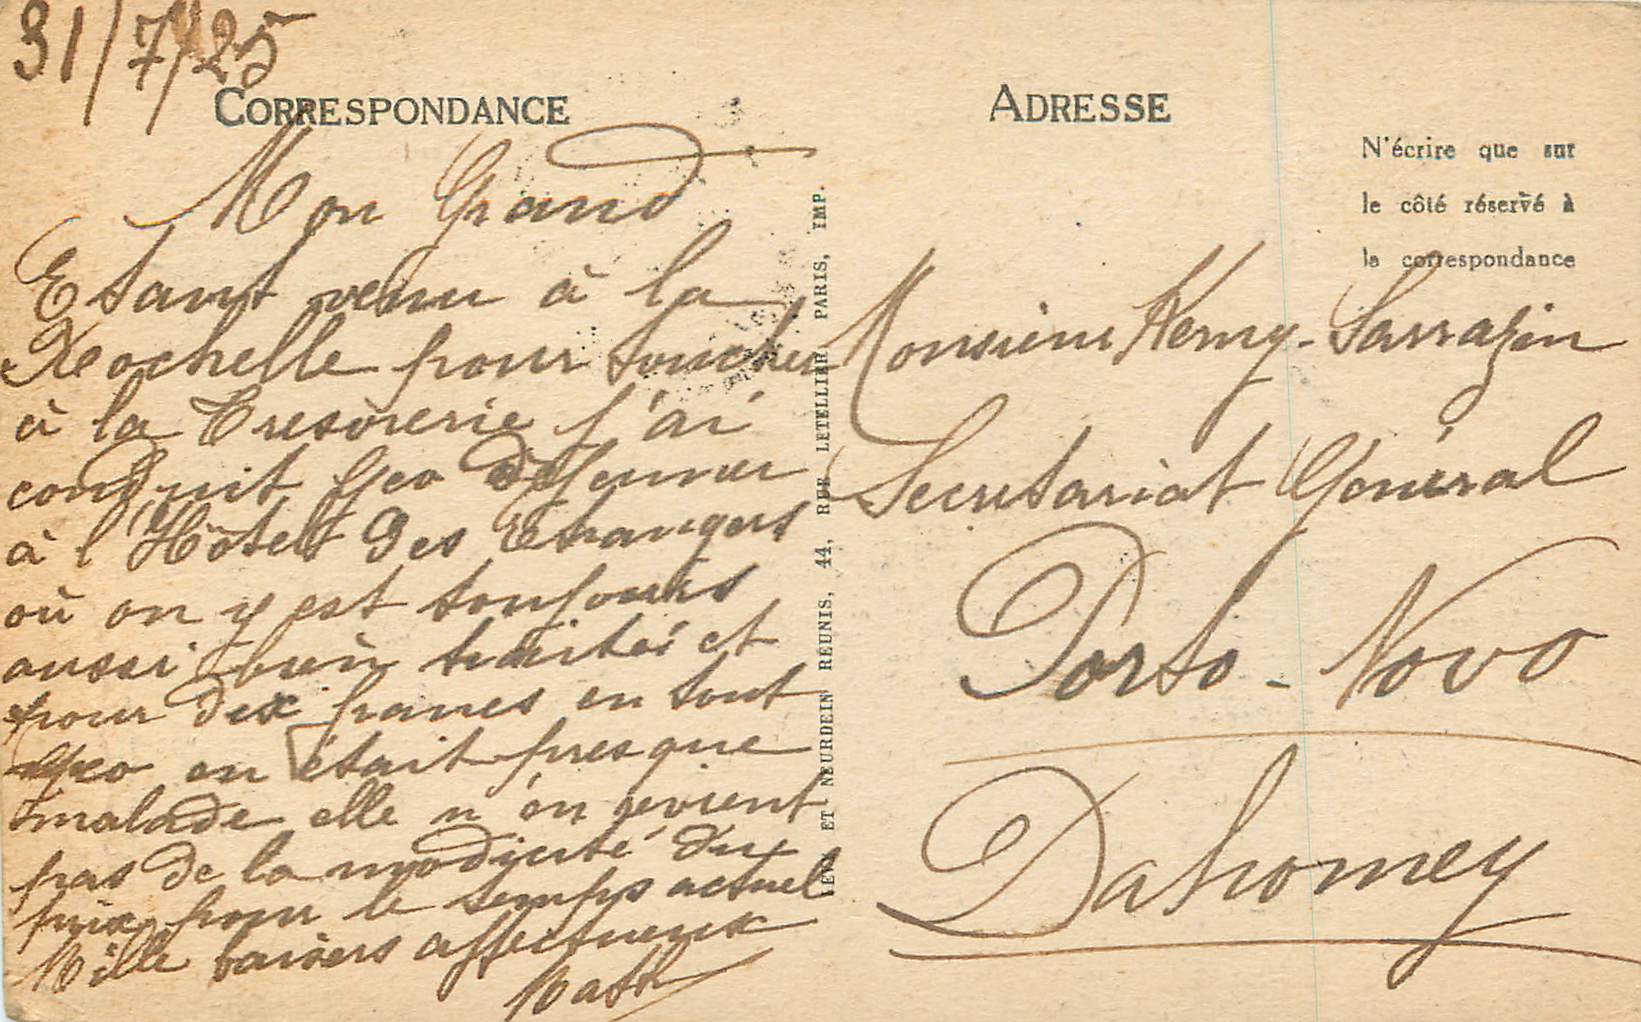 31/7/25
CORRESPONDANCE
Mon Grand
Etant venu à la
Rochelle pour toucher
à la Trésorerie j'ai
conduit Geo déjeuner
à l'Hôtel des Etrangers
où on y est toujours
aussi bien traités et
pour dix francs en tout
Geo en était presque
malade elle n'en revient
pas de la modicité du
prix pour le temps actuel
Mille baisers affectueux
Math
LEVY ET NEURDEIN REUNIS, 44, RUE LETELLIER PARIS, IMP.
ADRESSE
N'écrire que sur
le côté réservé à
la correspondance
Monsieur Remy-Sarrazin
Secretariat Général
Porto-Novo
Dahomey